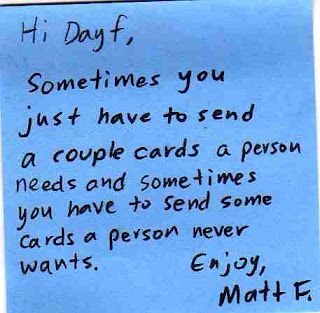 Hi Dayf,
Sometimes you
just have to send
a couple cards a person
needs and sometimes
you have to send some
cards a person never
wants. Enjoy,
Matt F.